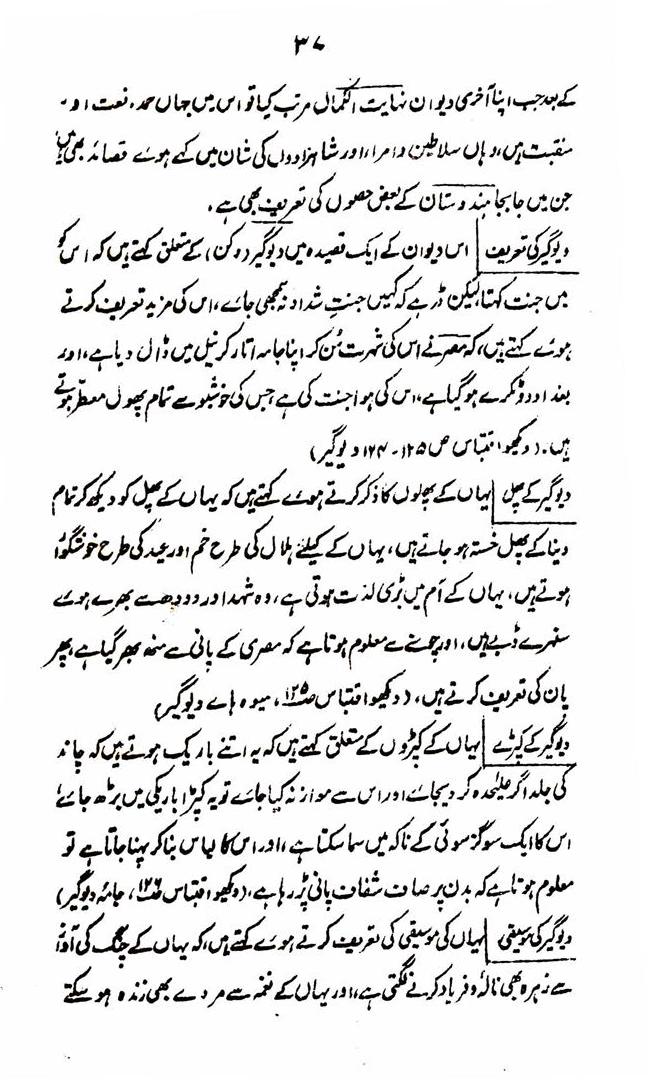 ۳۷
کے بعد جب اپنا آخری دیوان نہایت الکمال مرتب کیا تو اس میں جہاں حمد، نعت اور
منقبت ہیں، وہاں سلاطین و امراء، اور شاہزادوں کی شان میں کہے ہوے قصائد بھی ہیں
جن میں جابجا ہندوستان کے بعض حصوں کی تعریف بھی ہے۔
دیوگیر کی تعریف اس دیوان کے ایک قصیدہ میں دیوگیر (دکن) کے متعلق کہتے ہیں کہ اس کو
میں جنت کہتا لیکن ڈر ہے کہ کہیں جنتِ شداد نہ سمجھی جاے، اس کی مزید تعریف کرتے
ہوے کہتے ہیں، کہ مصر نے اس کی شہرت سُن کر اپنا جامہ اتار کر نیل میں ڈال دیا ہے، اور
بغداد دو ٹکڑے ہو گیا ہے، اس کی ہوا جنت کی ہے جس کی خوشبو سے تمام پھول معطر ہوتے
ہیں۔ (دیکھو اقتباس ص ۱۲۵-۱۲۴ دیوگیر)
دیوگیر کے پھل یہاں کے پھلوں کا ذکر کرتے ہوے کہتے ہیں کہ یہاں کے پھل کو دیکھ کر تمام
دینا کے پھل خستہ ہو جاتے ہیں، یہاں کے کیلے ہلال کی طرح خم اور عید کی طرح خوشگوار
ہوتے ہیں، یہاں کے آم میں بڑی لذت ہوتی ہے، وہ شہد اور دودھ سے بھرے ہوے
سنہرے ڈبے ہیں، اور چوسنے سے معلوم ہوتا ہے کہ مصری کے پانی سے منھ بھر گیا ہے، پھر
پان کی تعریف کرتے ہیں، (دیکھو اقتباس ص۱۲۵، میوہ ہاے دیوگیر)
دیوگیر کے کپڑے یہاں کے کپڑوں کے متعلق کہتے ہیں کہ یہ اتنے باریک ہوتے ہیں کہ چاند
کی جلد اگر علیٰحدہ کر دیجاے اور اس سے موازنہ کیا جاے تو یہ کپڑا باریکی میں بڑھ جائے
اس کا ایک سو گز سوئی کے ناکہ میں سما سکتا ہے، اور اس کا لباس بنا کر پہنا جاتا ہے تو
معلوم ہوتا ہے کہ بدن پر صاف شفاف پانی پڑ رہا ہے، (دیکھو اقتباس ص۱۲۶، جامۂ دیوگیر)
دیوگیر کی موسیقی یہاں کی موسیقی کی تعریف کرتے ہوے کہتے ہیں، کہ یہاں کے چنگ کی آواز
سے زہرہ بھی نالہ و فریاد کرنے لگتی ہے، اور یہاں کے نغمہ سے مردے بھی زندہ ہو سکتے